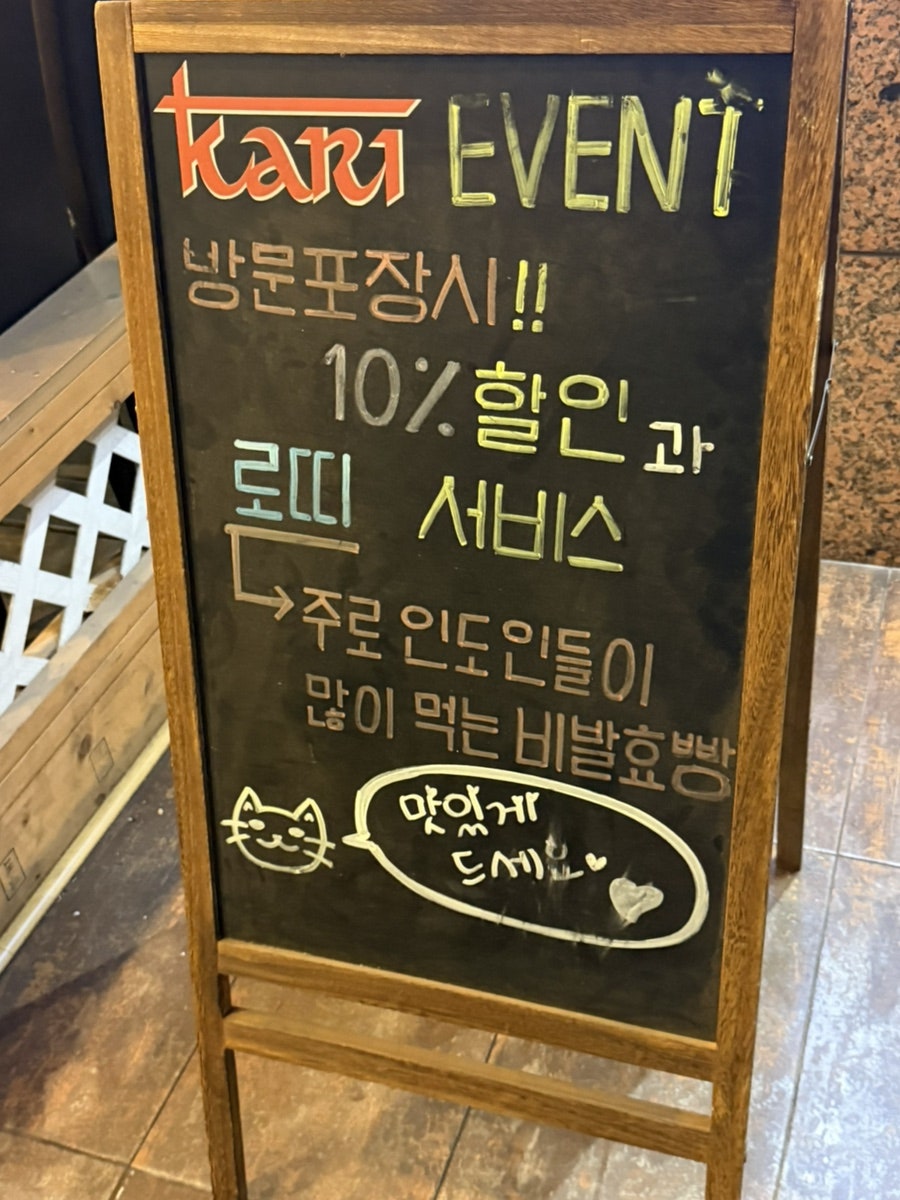 Kari EVENT
방문포장시!!
10% 할인과
로띠 서비스
→주로 인도인들이
많이 먹는 비발효빵
맛있게
드세요♥